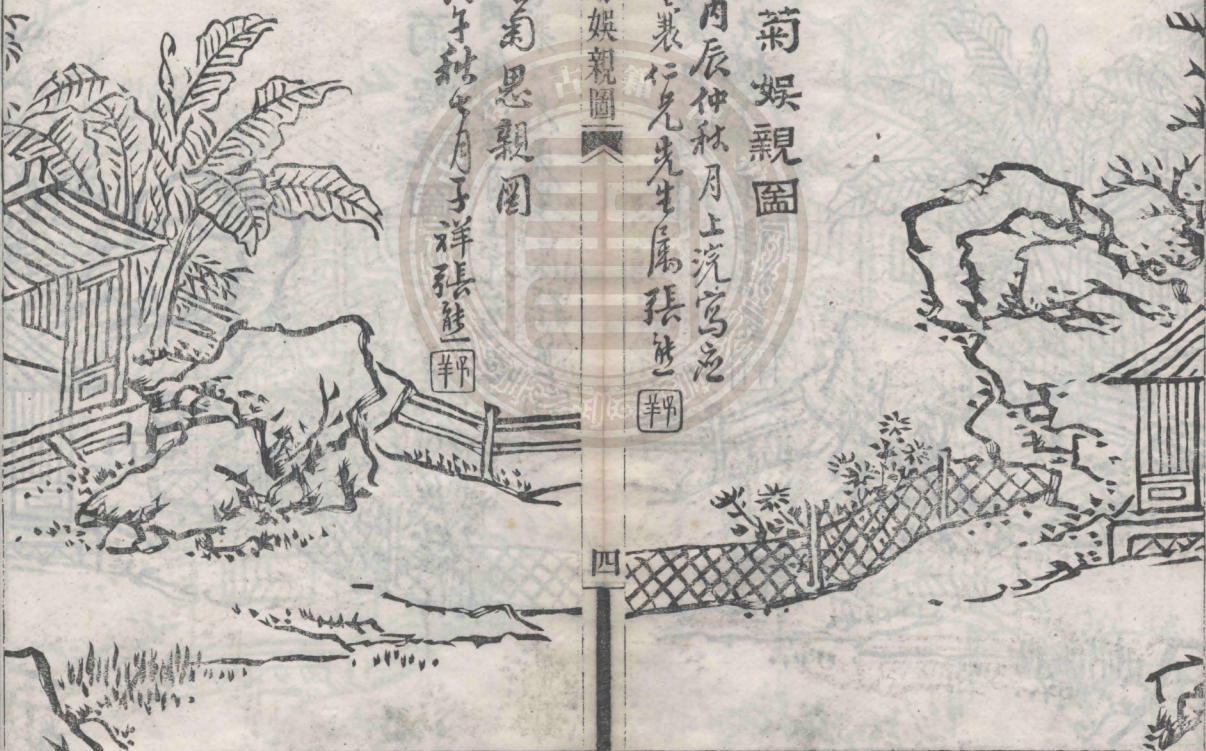 菊娛親圖
丙辰仲秋月上浣寫应
裴仁兄先生属張熊
娛親圖
四
菊思親圖
午秋七月子祥張熊